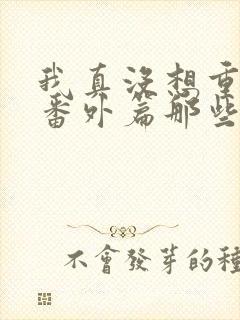 我真没想重
番外篇那些
不會發芽的種